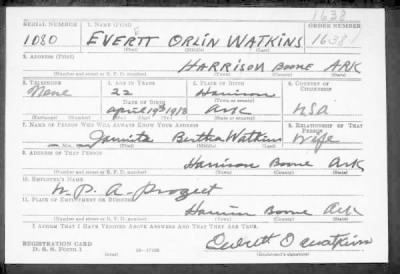 1638
SERIAL NUMBER 1. NAME (Print) ORDER NUMBER
1080 EVERTT ORLIN WATKINS 1638
(First) (Middle) (Last)
2. ADDRESS (Print)
HARRISON BOONE ARK
(Number and street or R. F. D. number) (Town) (County) (State)
3. TELEPHONE 4. AGE IN YEARS 5. PLACE OF BIRTH 6. COUNTRY OF CITIZENSHIP
None 22 Harrison
DATE OF BIRTH (Town or county)
April 19th 1918 Ark USA
(Exchange) (Number) (Mo.) (Day) (Yr.) (State or country)
7. NAME OF PERSON WHO WILL ALWAYS KNOW YOUR ADDRESS 8. RELATIONSHIP OF THAT PERSON
Juanita Bertha Watkins Wife
(Mr., Mrs., Miss) (First) (Middle) (Last)
9. ADDRESS OF THAT PERSON
Harrison Boone Ark
(Number and street or R. F. D. number) (Town) (County) (State)
10. EMPLOYER'S NAME
W. P. A - Prozect
11. PLACE OF EMPLOYMENT OR BUSINESS
Harrison Boone Ark
(Number and street or R. F. D. number) (Town) (County) (State)
I AFFIRM THAT I HAVE VERIFIED ABOVE ANSWERS AND THAT THEY ARE TRUE.
REGISTRATION CARD
D. S. S. Form 1 Everett O Watkins
(Registrant's signature)